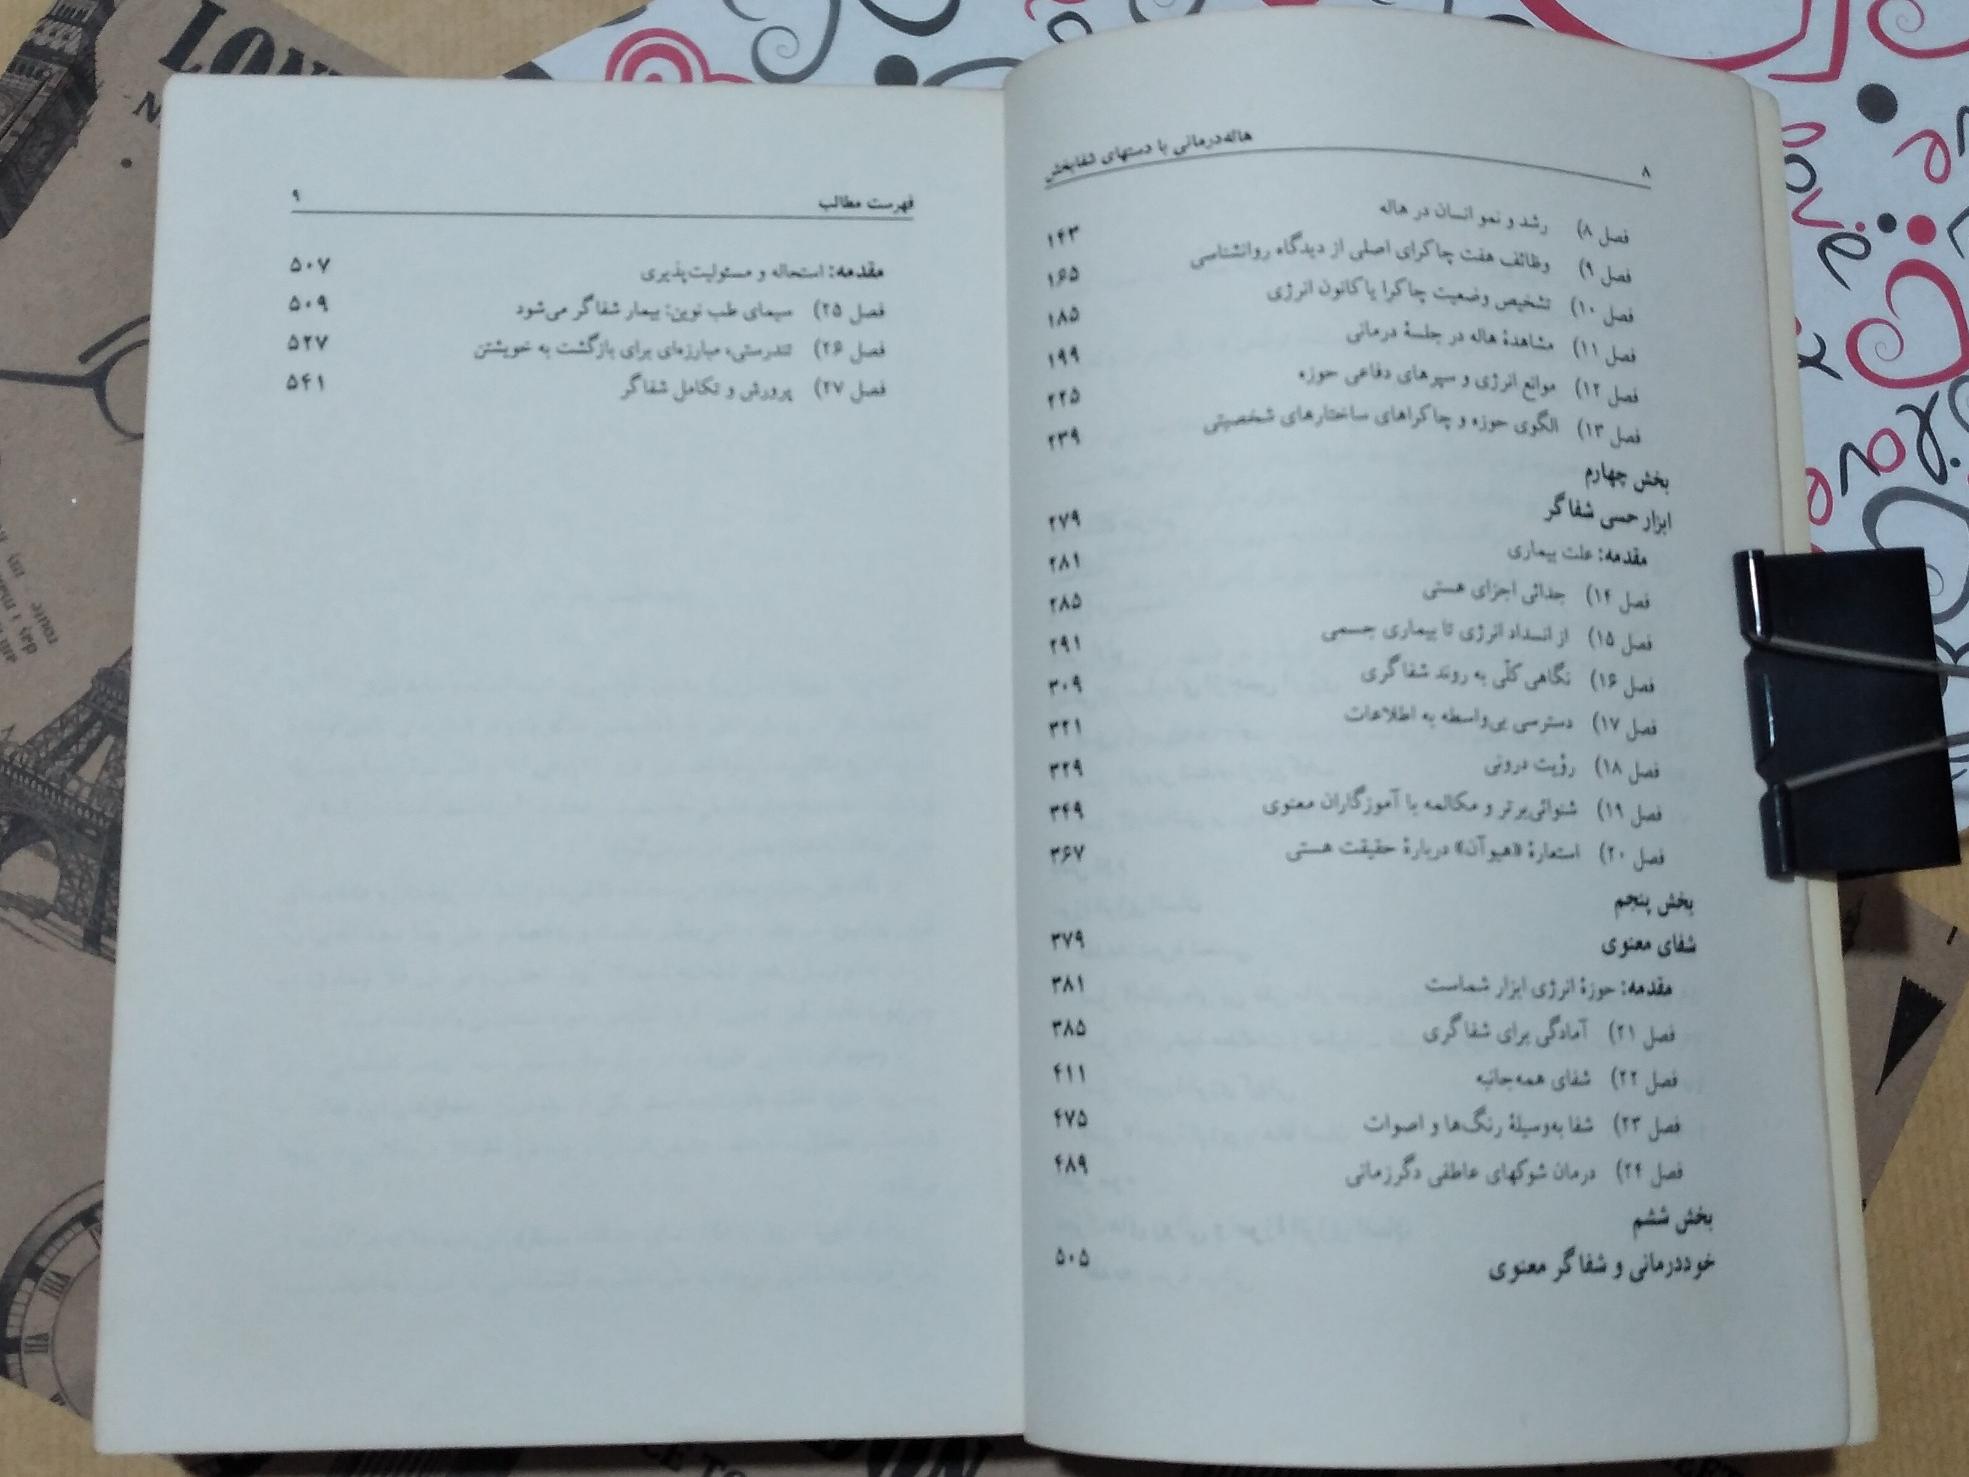 ۸ هاله‌درمانی با دستهای شفابخش
فصل ۸) رشد و نمو انسان در هاله ۱۴۳
فصل ۹) وظائف هفت چاکرای اصلی از دیدگاه روانشناسی ۱۶۵
فصل ۱۰) تشخیص وضعیت چاکرا یا کانون انرژی ۱۸۵
فصل ۱۱) مشاهدهٔ هاله در جلسهٔ درمانی ۱۹۹
فصل ۱۲) موانع انرژی و سپرهای دفاعی حوزه ۲۲۵
فصل ۱۳) الگوی حوزه و چاکراهای ساختارهای شخصیتی ۲۳۹
بخش چهارم
ابزار حسی شفاگر ۲۷۹
مقدمه: علت بیماری ۲۸۱
فصل ۱۴) جدائی اجزای هستی ۲۸۵
فصل ۱۵) از انسداد انرژی تا بیماری جسمی ۲۹۱
فصل ۱۶) نگاهی کلّی به روند شفاگری ۳۰۹
فصل ۱۷) دسترسی بی‌واسطه به اطلاعات ۳۲۱
فصل ۱۸) رؤیت درونی ۳۲۹
فصل ۱۹) شنوائی‌برتر و مکالمه با آموزگاران معنوی ۳۴۹
فصل ۲۰) استعارهٔ «هیوآن» دربارهٔ حقیقت هستی ۳۶۷
بخش پنجم
شفای معنوی ۳۷۹
مقدمه: حوزهٔ انرژی ابزار شماست ۳۸۱
فصل ۲۱) آمادگی برای شفاگری ۳۸۵
فصل ۲۲) شفای همه‌جانبه ۴۱۱
فصل ۲۳) شفا به‌وسیلهٔ رنگ‌ها و اصوات ۴۷۵
فصل ۲۴) درمان شوکهای عاطفی دگرزمانی ۴۸۹
بخش ششم
خوددرمانی و شفاگر معنوی ۵۰۵
فهرست مطالب ۹
مقدمه: استحاله و مسئولیت‌پذیری ۵۰۷
فصل ۲۵) سیمای طب نوین: بیمار شفاگر می‌شود ۵۰۹
فصل ۲۶) تندرستی، مبارزه‌ای برای بازگشت به خویشتن ۵۲۷
فصل ۲۷) پرورش و تکامل شفاگر ۵۴۱